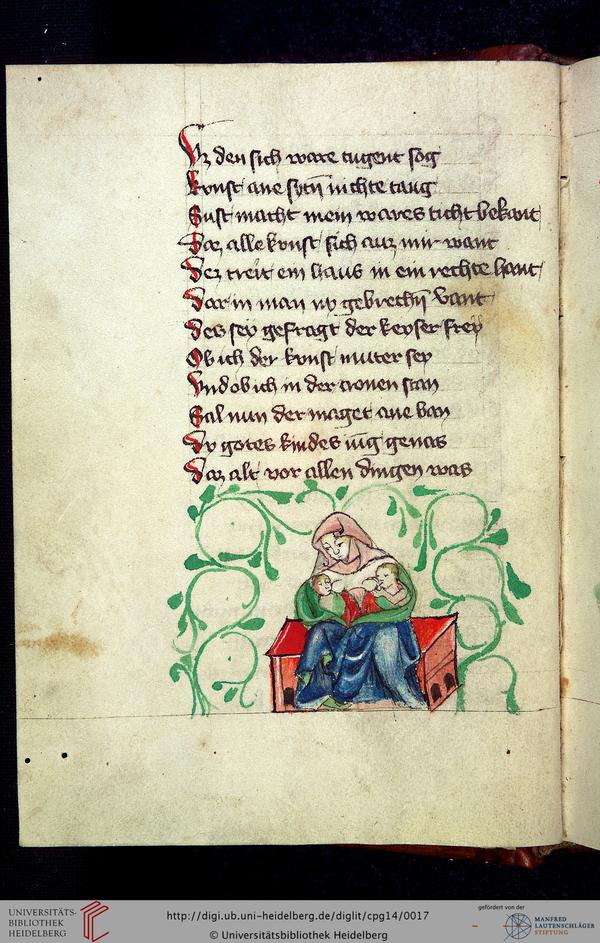 Vz den sich ware tugent sog
kvnst ane sytn̄ nichte taug
Sust macht mein wares ticht bekant
Daz alle kvnst sich auz mir want
Der treit ein haus in ein rechte hant
Dar in man ny gebrechn̄ vant
des sey gefragt der keyser frey
Ob ich der kvnst muter sey
Vnd ob ich in der cronen stan
Sal nun der maget ane ban
Dy gotes kindes iūg genas
Daz alt vor allen dingen was
UNIVERSITÄTS-
BIBLIOTHEK
HEIDELBERG
http://digi.ub.uni-heidelberg.de/diglit/cpg14/0017
© Universitätsbibliothek Heidelberg
gefördert von der
MANFRED
LAUTENSCHLÄGER
STIFTUNG